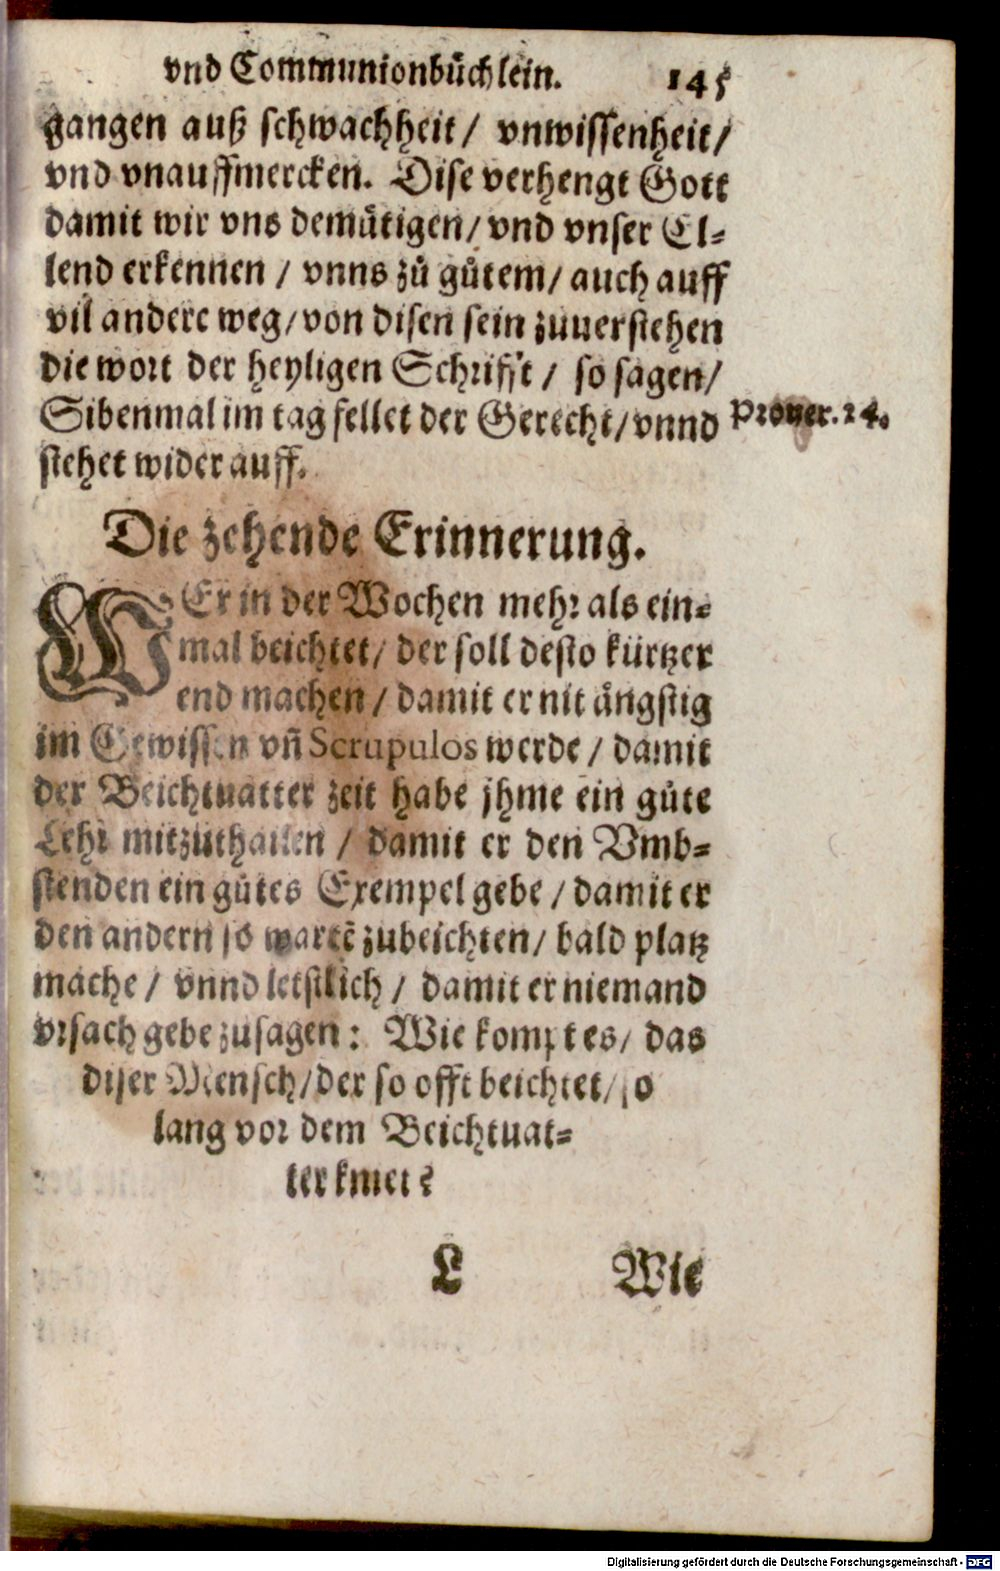 vnd Communionbüchlein. 145
gangen auß schwachheit/ vnwissenheit/
vnd vnauffmercken. Dise verhengt Gott
damit wir vns demütigen/ vnd vnser El-
lend erkennen / vnns zů gůtem/ auch auff
vil andere weg/ von disen sein zuuerstehen
die wort der heyligen Schrifft / so sagen/
Sibenmal im tag fellet der Gerecht/ vnnd Prouer. 24.
stehet wider auff.
Die zehende Erinnerung.
WEr in der Wochen mehr als ein-
mal beichtet/ der soll desto kürtzer
end machen / damit er nit ängstig
im Gewissen vñ Scrupulos werde / damit
der Beichtuatter zeit habe jhme ein gůte
Lehr mitzuthailen / damit er den Vmb-
stenden ein gůtes Exempel gebe / damit er
den andern so wartẽ zubeichten/ bald platz
mache / vnnd letstlich / damit er niemand
vrsach gebe zusagen: Wie kompt es/ das
diser Mensch/ der so offt beichtet/ so
lang vor dem Beichtuat-
ter kniet?
L Wie
Digitalisierung gefördert durch die Deutsche Forschungsgemeinschaft - DFG